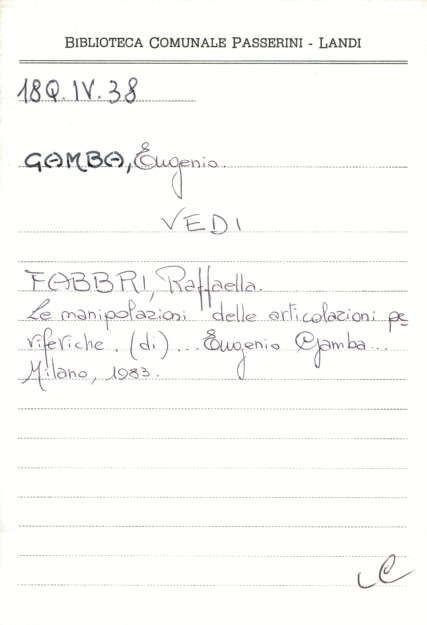 BIBLIOTECA COMUNALE PASSERINI - LANDI
18Q.IV.38
GAMBA, Eugenio.
VEDI
FABBRI, Raffaella.
Le manipolazioni delle articolazioni pe
riferiche. (di)... Eugenio Gamba...
Milano, 1983.